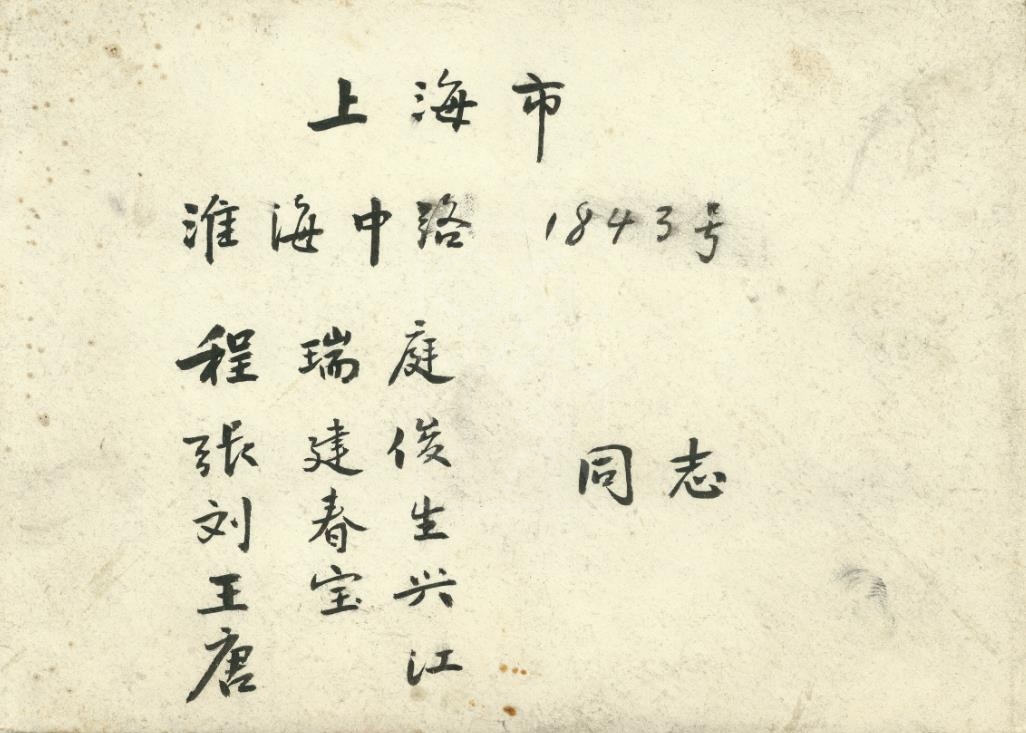 上海市
淮海中路 1843号
程瑞庭
張建俊
刘春生 同志
王宝兴
唐江